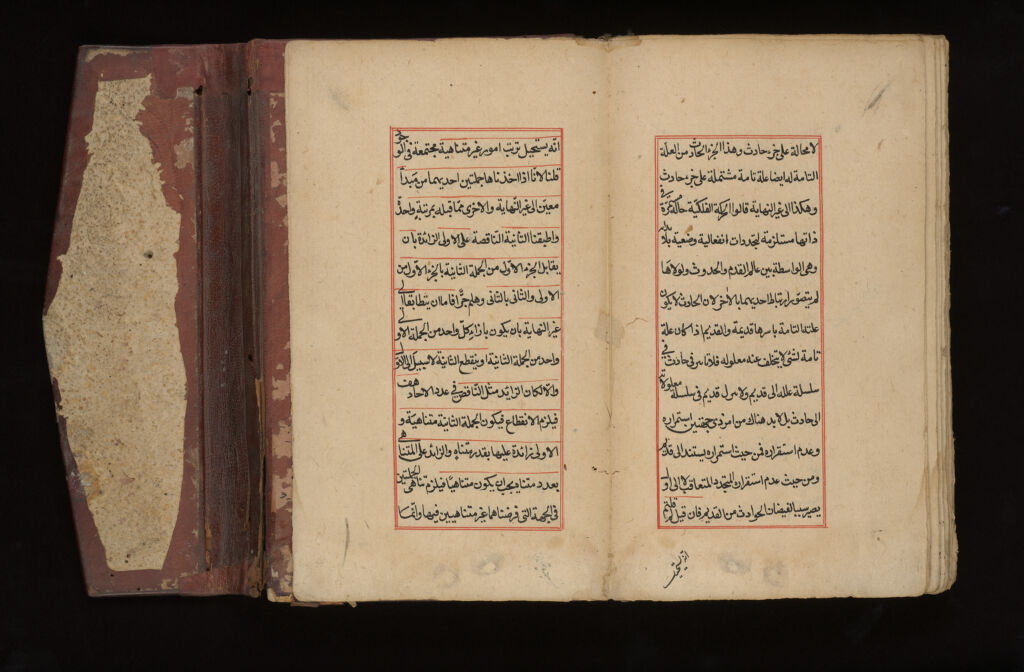 لا محالة على جزء حادث وهذا الجزء الحادث من العلة
التامة له ايضا علة تامة مشتملة على جزء حادث
وهكذا الى غير النهاية قالوا الحركة الفلكية حالة
ذاتها مستلزمة لتجددات انفعالية وضعية بلا
وهى الواسطة بين عالم القدم والحدوث ولولاها
لم يتصور ارتباط احديهما بالاخر لان الحادث لا يكون
علته التامة باسرها قديمة والقديم اذا كان علة
تامة لشئ لا يتخلف عنه معلوله فلا حادث فى
سلسلة علله الى قديم ولا قديم فى سلسلة معلولاته
الى حادث بل لابد هناك من امر ذى جهتين استمراره
وعدم استقراره فمن حيث استمراره يستند الى قديم
ومن حيث عدم استقراره المتجدد المتعاقب لا الى اول
يصير سببا لفيضان الحوادث من القديم فان قيل قلتم
انه يستحيل
انه يستحيل ترتب امور غير متناهية مجتمعة فى الوجود
قلنا لانا اذا اخذناها جملتين احديهما من مبدأ
معين الى غير النهاية والاخرى مما قبله بمرتبة واحدة
واطبقنا الثانية الناقصة على الاولى الزائدة بان
يقابل الجزء الاول من الجملة الثانية بالجزء الاول من
الاولى والثانى بالثانى وهلم جرا فاما ان يتطابقا الى
غير النهاية بان يكون بازاء كل واحد من الجملة الاولى
واحد من الجملة الثانية او ينقطع الثانية لا سبيل الى الاول
والا لكان الزايد مثل الناقص فى عدد الاحاد هف
فيلزم الانقطاع فيكون الجملة الثانية متناهية و
الاولى زائدة عليها بقدر متناه والزائد على المتناهى
بعدد متناه يجب ان يكون متناهيا فيلزم تناهى الجملتين
فى الجهة التى فرضناهما غير متناهيين فيها وانما